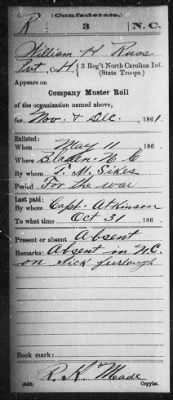 (Confederate.)
R 3 N.C.
William H Russ
Pvt, Co. H, 3 Reg't North Carolina Inf.
(State Troops.)
Appears on
Company Muster Roll
of the organization named above,
for Nov. & Dec., 1861
Enlisted:
When May 11, 186
Where Bladen N C
By whom T. M. Sikes
Period For the war
Last paid:
By whom Capt. Atkinson
To what time Oct 31, 186
Present or absent Absent
Remarks: Absent in N.C.
on sick furlough
Book mark:
R. H. Meade
Copyist.